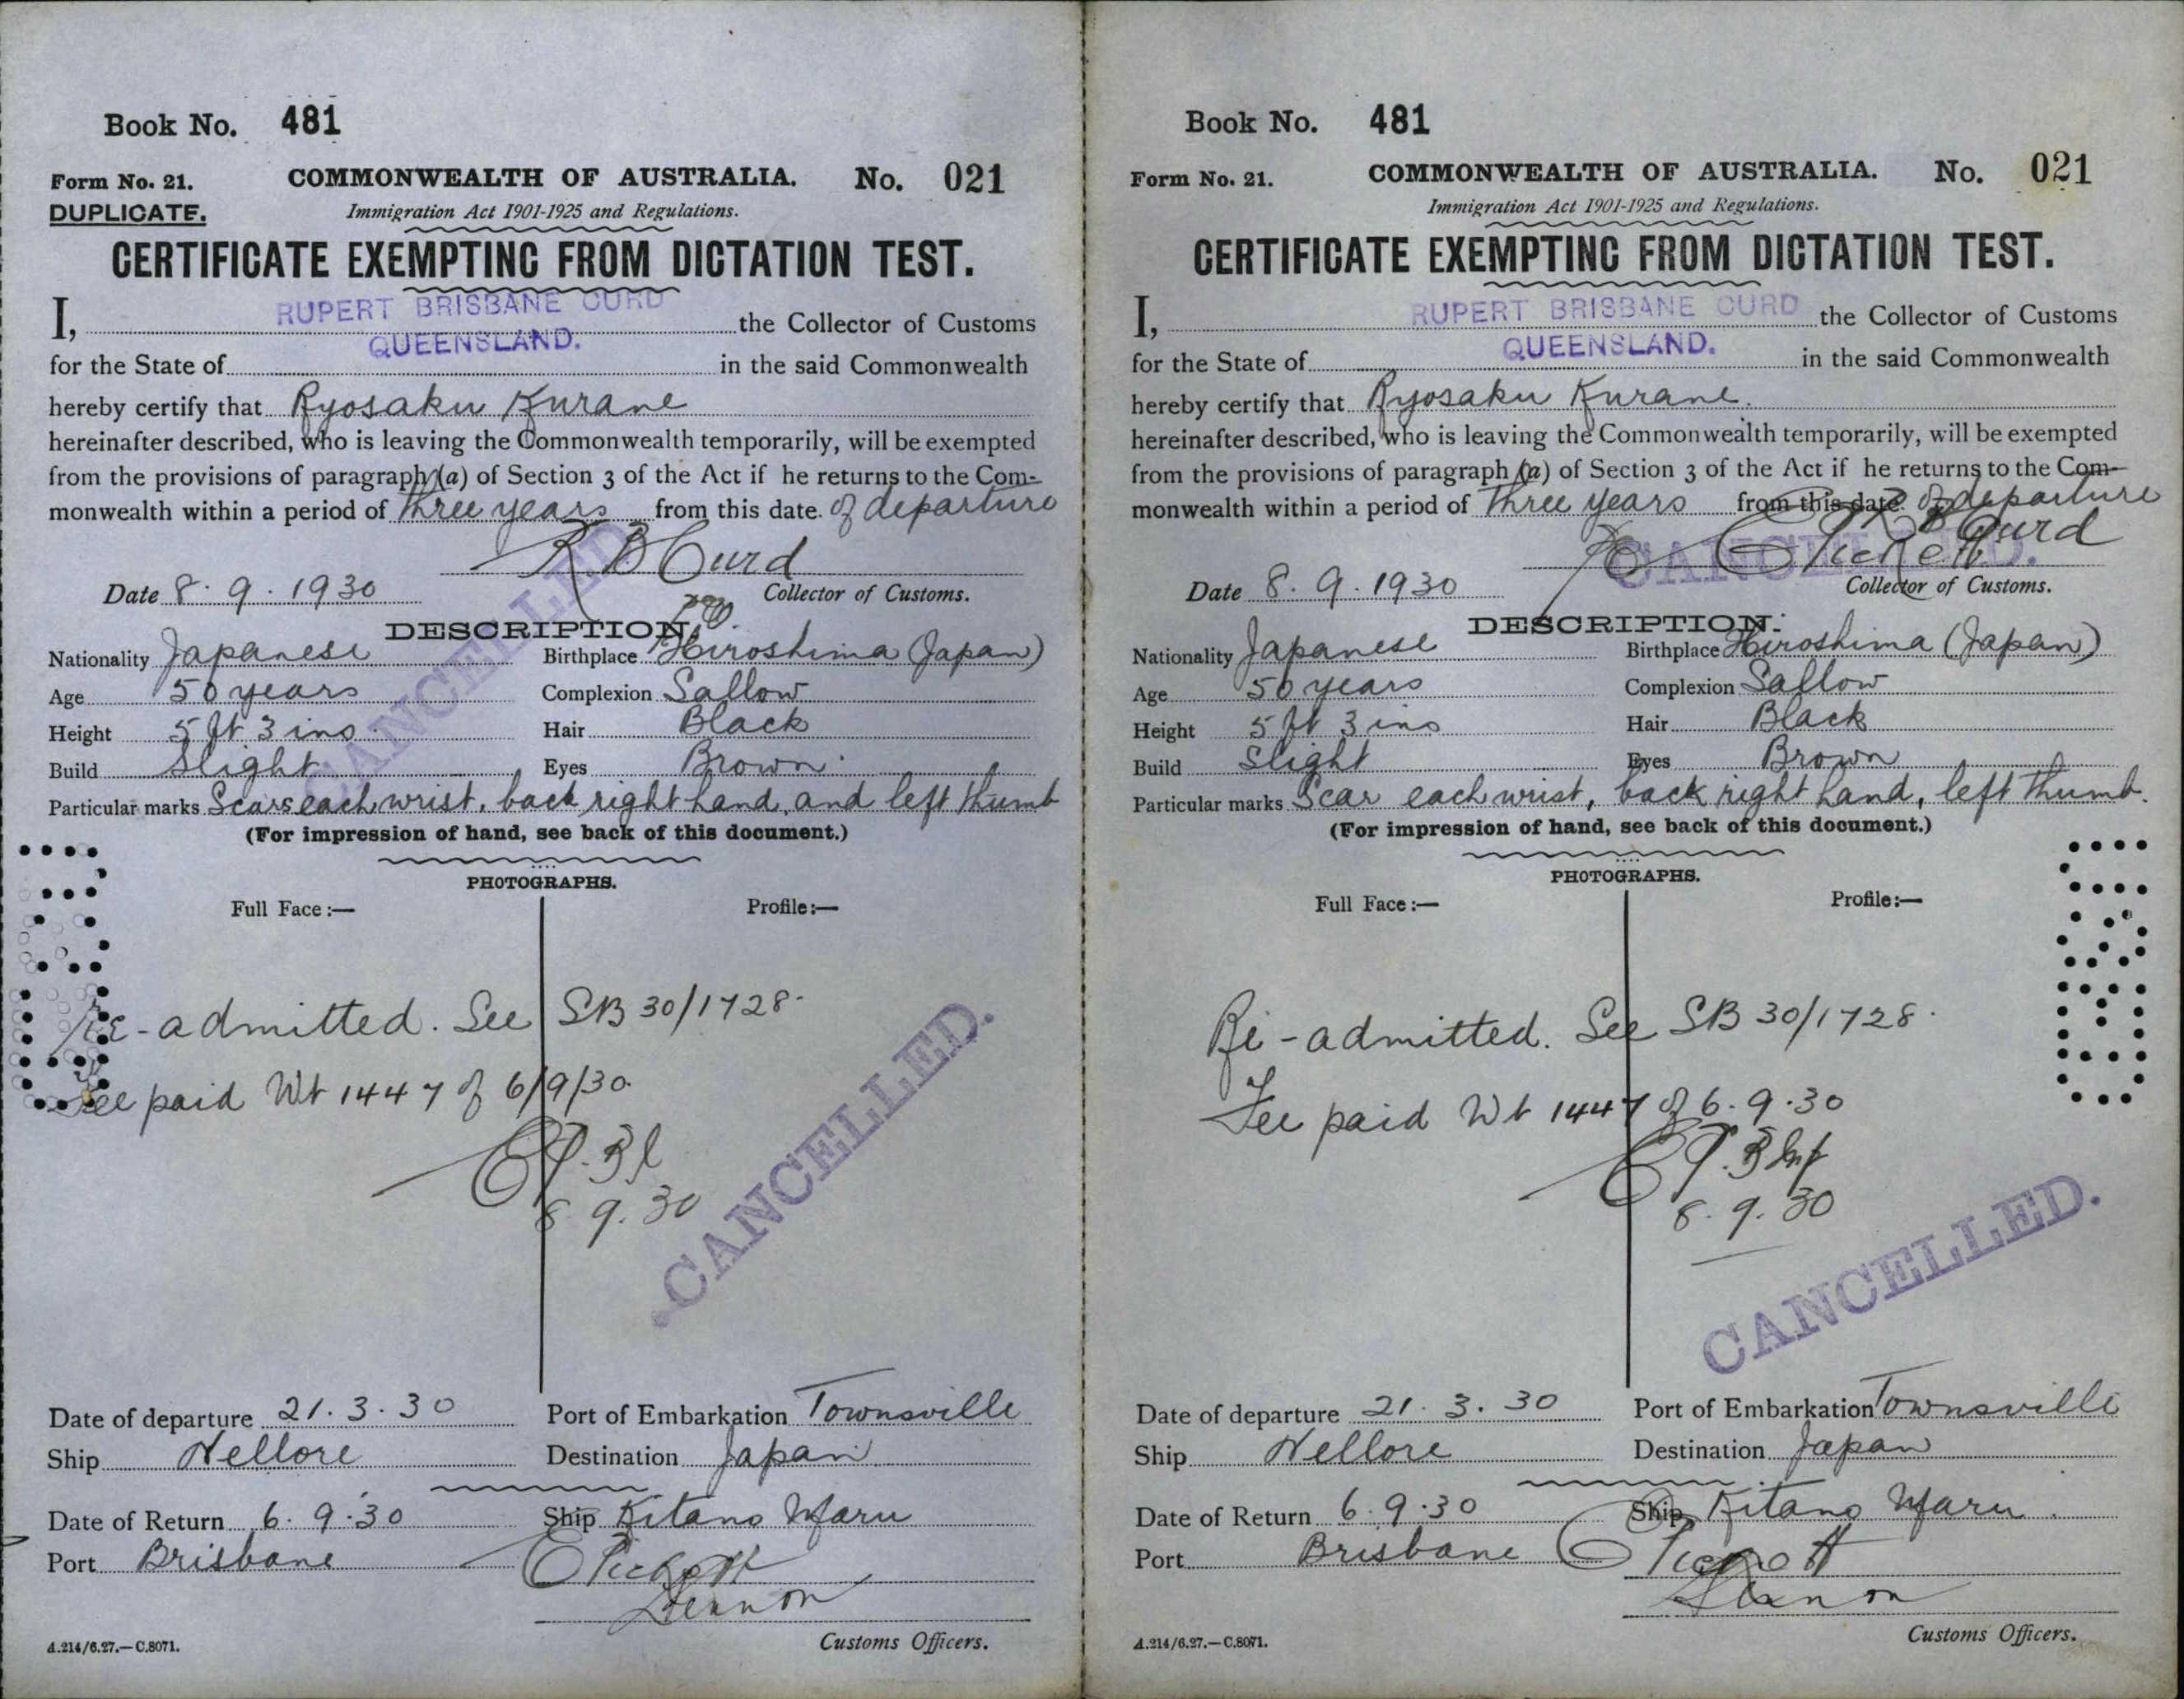 Book No. 481
Form No. 21.
COMMONWEALTH OF AUSTRALIA. No. 021
DUPLICATE.
Immigration Act 1901-1925 and Regulations.
CERTIFICATE EXEMPTING FROM DICTATION TEST.
I, RUPERT BRISBANE CURD the Collector of Customs
for the State of QUEENSLAND. in the said Commonwealth
hereby certify that Ryosaku Kurane
hereinafter described, who is leaving the Commonwealth temporarily, will be exempted
from the provisions of paragraph (a) of Section 3 of the Act if he returns to the Com-
monwealth within a period of three years from this date of departure
R B Curd
Date 8.9.1930 Collector of Customs.
CANCELLED.
DESCRIPTION.
Nationality Japanese Birthplace Hiroshima (Japan)
Age 50 years Complexion Sallow
Height 5 ft 3 ins. Hair Black
Build Slight Eyes Brown
Particular marks Scars each wrist, back right hand, and left thumb
(For impression of hand, see back of this document.)
PHOTOGRAPHS.
Full Face:— Profile:—
Re-admitted. See SB 30/1728.
Fee paid Wt 1447 of 6/9/30
8.9.30
CANCELLED.
Date of departure 21.3.30 Port of Embarkation Townsville
Ship Nellore Destination Japan
Date of Return 6.9.30 Ship Kitano Maru
Port Brisbane E Pickett
Lennon
A.214/6.27.—C.8071. Customs Officers.
Book No. 481
Form No. 21.
COMMONWEALTH OF AUSTRALIA. No. 021
Immigration Act 1901-1925 and Regulations.
CERTIFICATE EXEMPTING FROM DICTATION TEST.
I, RUPERT BRISBANE CURD the Collector of Customs
for the State of QUEENSLAND. in the said Commonwealth
hereby certify that Ryosaku Kurane.
hereinafter described, who is leaving the Commonwealth temporarily, will be exempted
from the provisions of paragraph (a) of Section 3 of the Act if he returns to the Com-
monwealth within a period of three years from this date of departure
R B Curd
E Pickett
CANCELLED.
Date 8.9.1930 Collector of Customs.
DESCRIPTION.
Nationality Japanese Birthplace Hiroshima (Japan)
Age 50 years Complexion Sallow
Height 5 ft 3 ins Hair Black
Build Slight Eyes Brown
Particular marks Scar each wrist, back right hand, left thumb.
(For impression of hand, see back of this document.)
PHOTOGRAPHS.
Full Face:— Profile:—
Re-admitted. See SB 30/1728.
Fee paid Wt 1447 of 6.9.30
8.9.30
CANCELLED.
Date of departure 21.3.30 Port of Embarkation Townsville
Ship Nellore Destination Japan
Date of Return 6.9.30 Ship Kitano Maru.
Port Brisbane E Pickett
Lennon
A.214/6.27.—C.8071. Customs Officers.